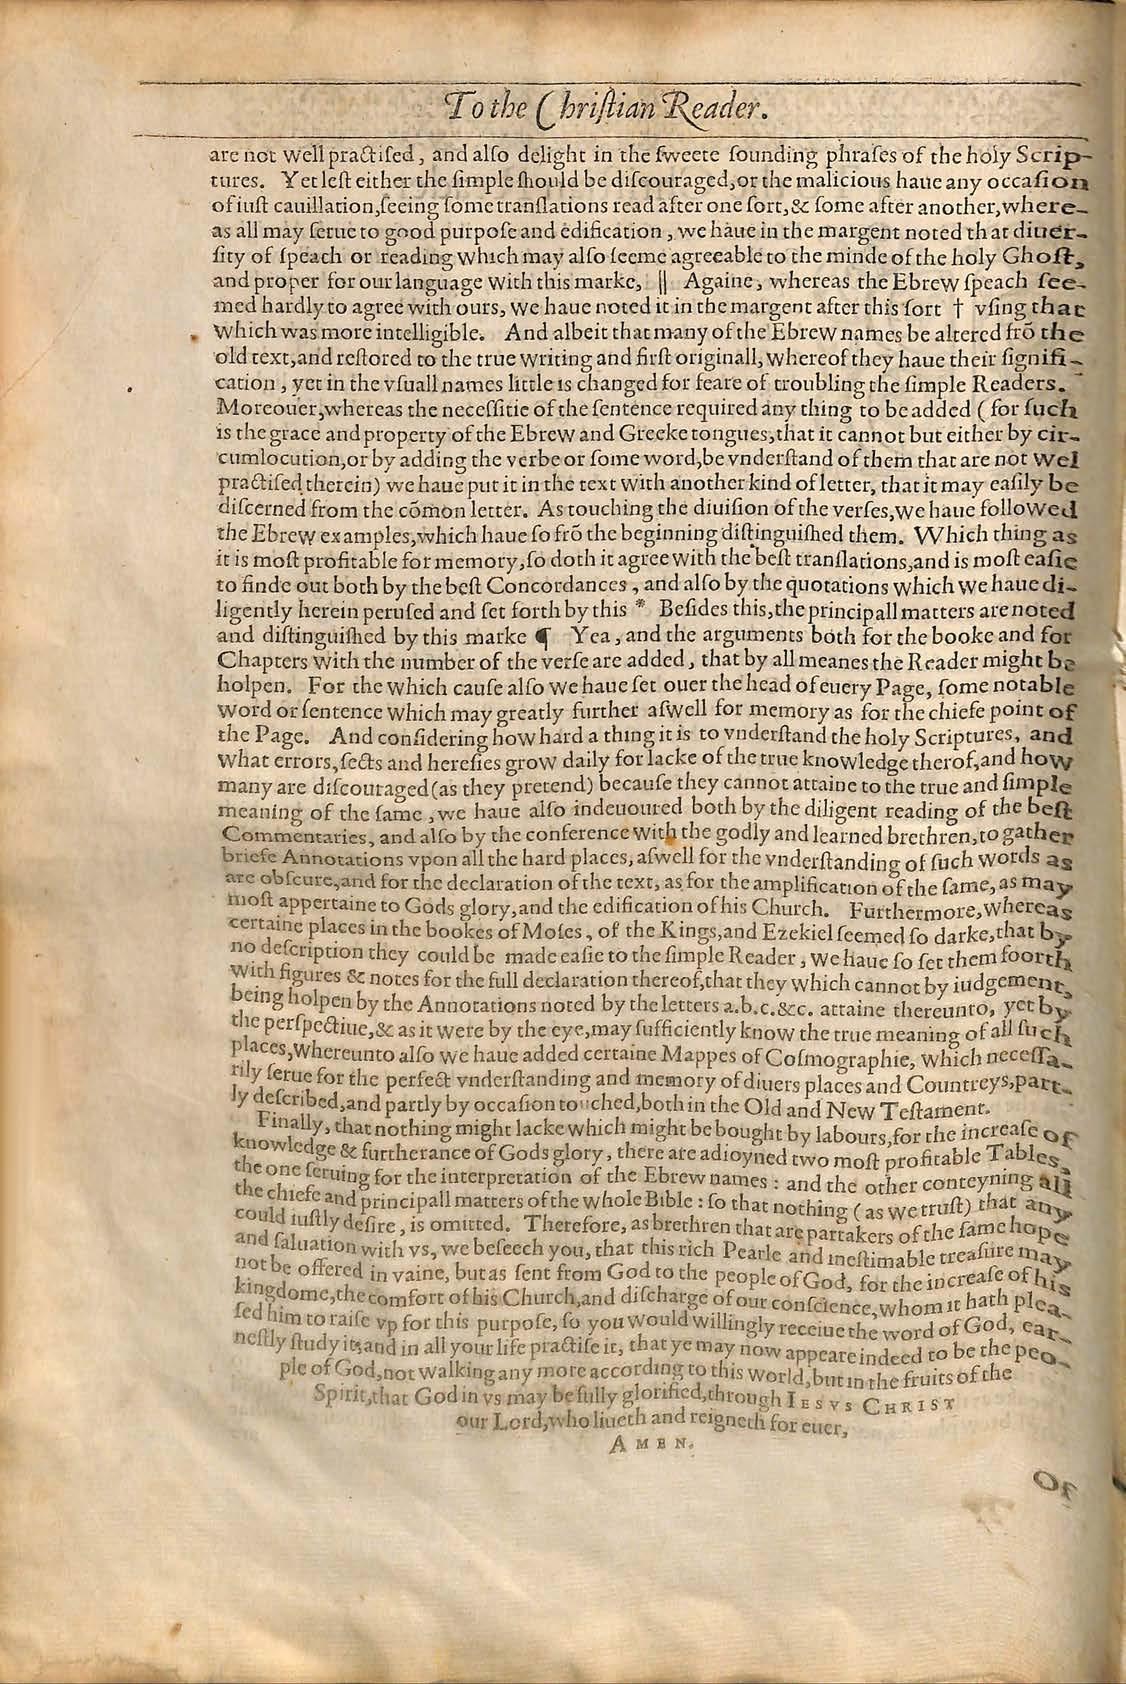 To the Chriſtian Reader.
are not well practiſed, and alſo delight in the ſweete ſounding phraſes of the holy Scrip-
tures. Yet leſt either the ſimple ſhould be diſcouraged, or the malicious haue any occaſion
of iuſt cauillation, ſeeing ſome tranſlations read after one ſort, & ſome after another, where-
as all may ſerue to good purpoſe and edification, we haue in the margent noted that diuer-
ſity of ſpeach or reading which may alſo ſeeme agreeable to the minde of the holy Ghoſt,
and proper for our language with this marke, || Againe, whereas the Ebrew ſpeach ſee-
med hardly to agree with ours, we haue noted it in the margent after this ſort † vſing that
which was more intelligible. And albeit that many of the Ebrew names be altered frõ the
old text, and reſtored to the true writing and firſt originall, whereof they haue their ſignifi-
cation, yet in the vſuall names little is changed for feare of troubling the ſimple Readers.
Moreouer, whereas the neceſſitie of the ſentence required any thing to be added (for ſuch
is the grace and property of the Ebrew and Greeke tongues, that it cannot but either by cir-
cumlocution, or by adding the verbe or ſome word, be vnderſtand of them that are not wel
practiſed therein) we haue put it in the text with another kind of letter, that it may eaſily be
diſcerned from the cõmon letter. As touching the diuiſion of the verſes, we haue followed
the Ebrew examples, which haue ſo frõ the beginning diſtinguiſhed them. Which thing as
it is moſt profitable for memory, ſo doth it agree with the beſt tranſlations, and is moſt eaſie
to finde out both by the beſt Concordances, and alſo by the quotations which we haue di-
ligently herein peruſed and ſet forth by this * Beſides this, the principall matters are noted
and diſtinguiſhed by this marke ¶ Yea, and the arguments both for the booke and for
Chapters with the number of the verſe are added, that by all meanes the Reader might be
holpen. For the which cauſe alſo we haue ſet ouer the head of euery Page, ſome notable
word or ſentence which may greatly further aſwell for memory as for the chiefe point of
the Page. And conſidering how hard a thing it is to vnderſtand the holy Scriptures, and
what errors, ſects and hereſies grow daily for lacke of the true knowledge therof, and how
many are diſcouraged (as they pretend) becauſe they cannot attaine to the true and ſimple
meaning of the ſame, we haue alſo indeuoured both by the diligent reading of the beſt
Commentaries, and alſo by the conference with the godly and learned brethren, to gather
briefe Annotations vpon all the hard places, aſwell for the vnderſtanding of ſuch words as
are obſcure, and for the declaration of the text, as for the amplification of the ſame, as may
moſt appertaine to Gods glory, and the edification of his Church. Furthermore, whereas
certaine places in the bookes of Moſes, of the Kings, and Ezekiel ſeemed ſo darke, that by
no deſcription they could be made eaſie to the ſimple Reader, we haue ſo ſet them foorth
with figures & notes for the full declaration thereof, that they which cannot by iudgement,
being holpen by the Annotations noted by the letters a.b.c.&c. attaine thereunto, yet by
the perſpectiue, & as it were by the eye, may ſufficiently know the true meaning of all ſuch
places, whereunto alſo we haue added certaine Mappes of Coſmographie, which neceſſa-
rily ſerue for the perfect vnderſtanding and memory of diuers places and Countreys, part-
ly deſcribed, and partly by occaſion touched, both in the Old and New Teſtament.
Finally, that nothing might lacke which might be bought by labours, for the increaſe of
knowledge & furtherance of Gods glory, there are adioyned two moſt profitable Tables,
the one ſeruing for the interpretation of the Ebrew names : and the other conteyning all
the chiefe and principall matters of the whole Bible : ſo that nothing (as we truſt) that any
could iuſtly deſire, is omitted. Therefore, as brethren that are partakers of the ſame hope
and ſaluation with vs, we beſeech you, that this rich Pearle and ineſtimable treaſure may
not be offered in vaine, but as ſent from God to the people of God, for the increaſe of his
kingdome, the comfort of his Church, and diſcharge of our conſcience, whom it hath plea-
ſed him to raiſe vp for this purpoſe, ſo you would willingly receiue the word of God, ear-
neſtly ſtudy it, and in all your life practiſe it, that ye may now appeare indeed to be the peo-
ple of God, not walking any more according to this world, but in the fruits of the
Spirit, that God in vs may be fully glorified, through IESVS CHRIST
our Lord, who liueth and reigneth for euer,
AMEN.
Of